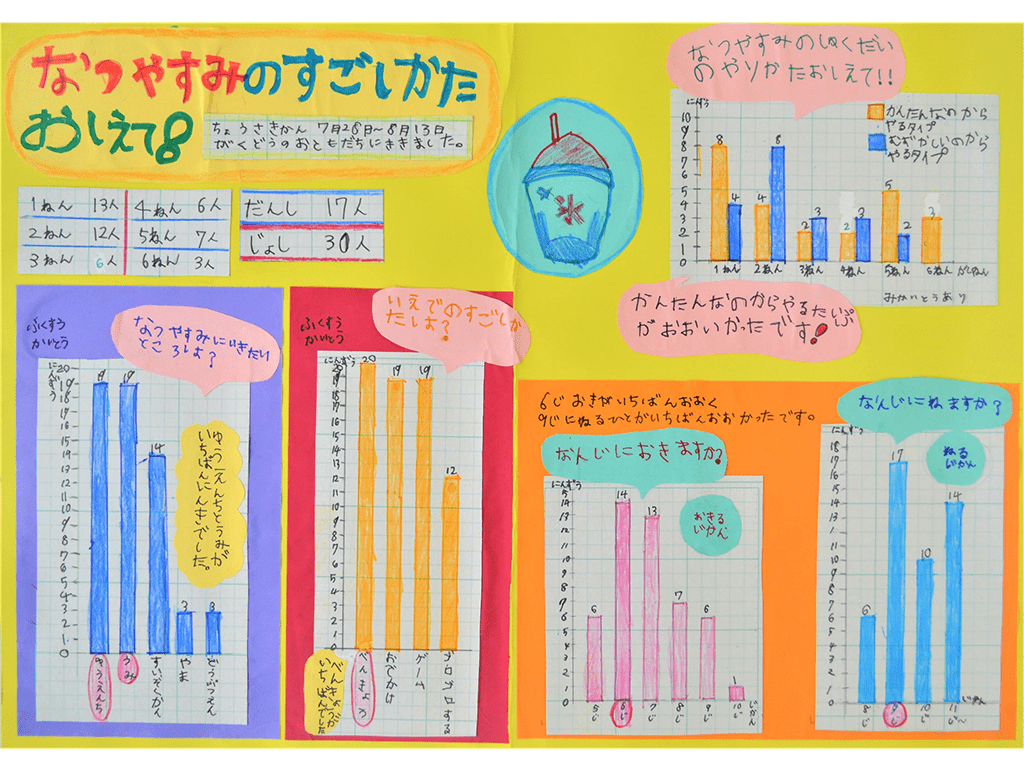 なつやすみのすごしかた
おしえて8
ちょうさきかん 7月26日~8月13日
がくどうのおともだちにききました。
1ねん 13人 4ねん 6人
2ねん 12人 5ねん 7人
3ねん 6人 6ねん 3人
だんし 17人
じょし 30人
氷
なつやすみのしゅくだい
のやりかたおしえて!!
にんずう
かんたんなのから
やるタイプ
むずかしいのから
やるタイプ
10
9
8
7
6
5
4
3
2
1
0
8 4 4 8 2 3 2 3 5 2 3
1ねん 2ねん 3ねん 4ねん 5ねん 6ねん がくねん
みかいとうあり
かんたんなのからやるたいぷ
がおおいかったです!
ふくすう
かいとう
なつやすみにいきたい
ところは?
にんずう
20
19
18
17
16
15
14
13
12
11
10
9
8
7
6
5
4
3
2
1
0
19 19 14 3 3
ゆうえんち
うみ
すいぞくかん
やま
どうぶつえん
ゆうえんちとうみが
いちばんにんきでした。
ふくすう
かいとう
いえでのすごしか
たは?
にんずう
20
19
18
17
16
15
14
13
12
11
10
9
8
7
6
5
4
3
2
1
0
20 19 19 12
べんきょう
おでかけ
ゲーム
ゴロゴロする
べんきょうが
いちばんでした
6じおきがいちばんおおく
9じにねるひとがいちばんおおかったです。
なんじにおきますか?
にんずう
15
14
13
12
11
10
9
8
7
6
5
4
3
2
1
0
6 14 13 7 6 1
5じ 6じ 7じ 8じ 9じ 10じ じかん
おきる
じかん
なんじにねますか?
にんずう
17
14
13
12
11
10
9
8
7
6
5
4
3
2
1
0
6 17 10 14
8じ 9じ 10じ 11じ~ じかん
ねる
じかん